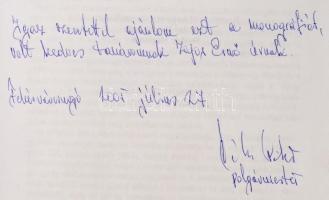 Igaz szeretettel ajánlom ezt a monográfiát,
volt kedves tanáromnak Zajos Ernő úrnak.
Fehérvárcsurgó 2005 július 27.
polgármester